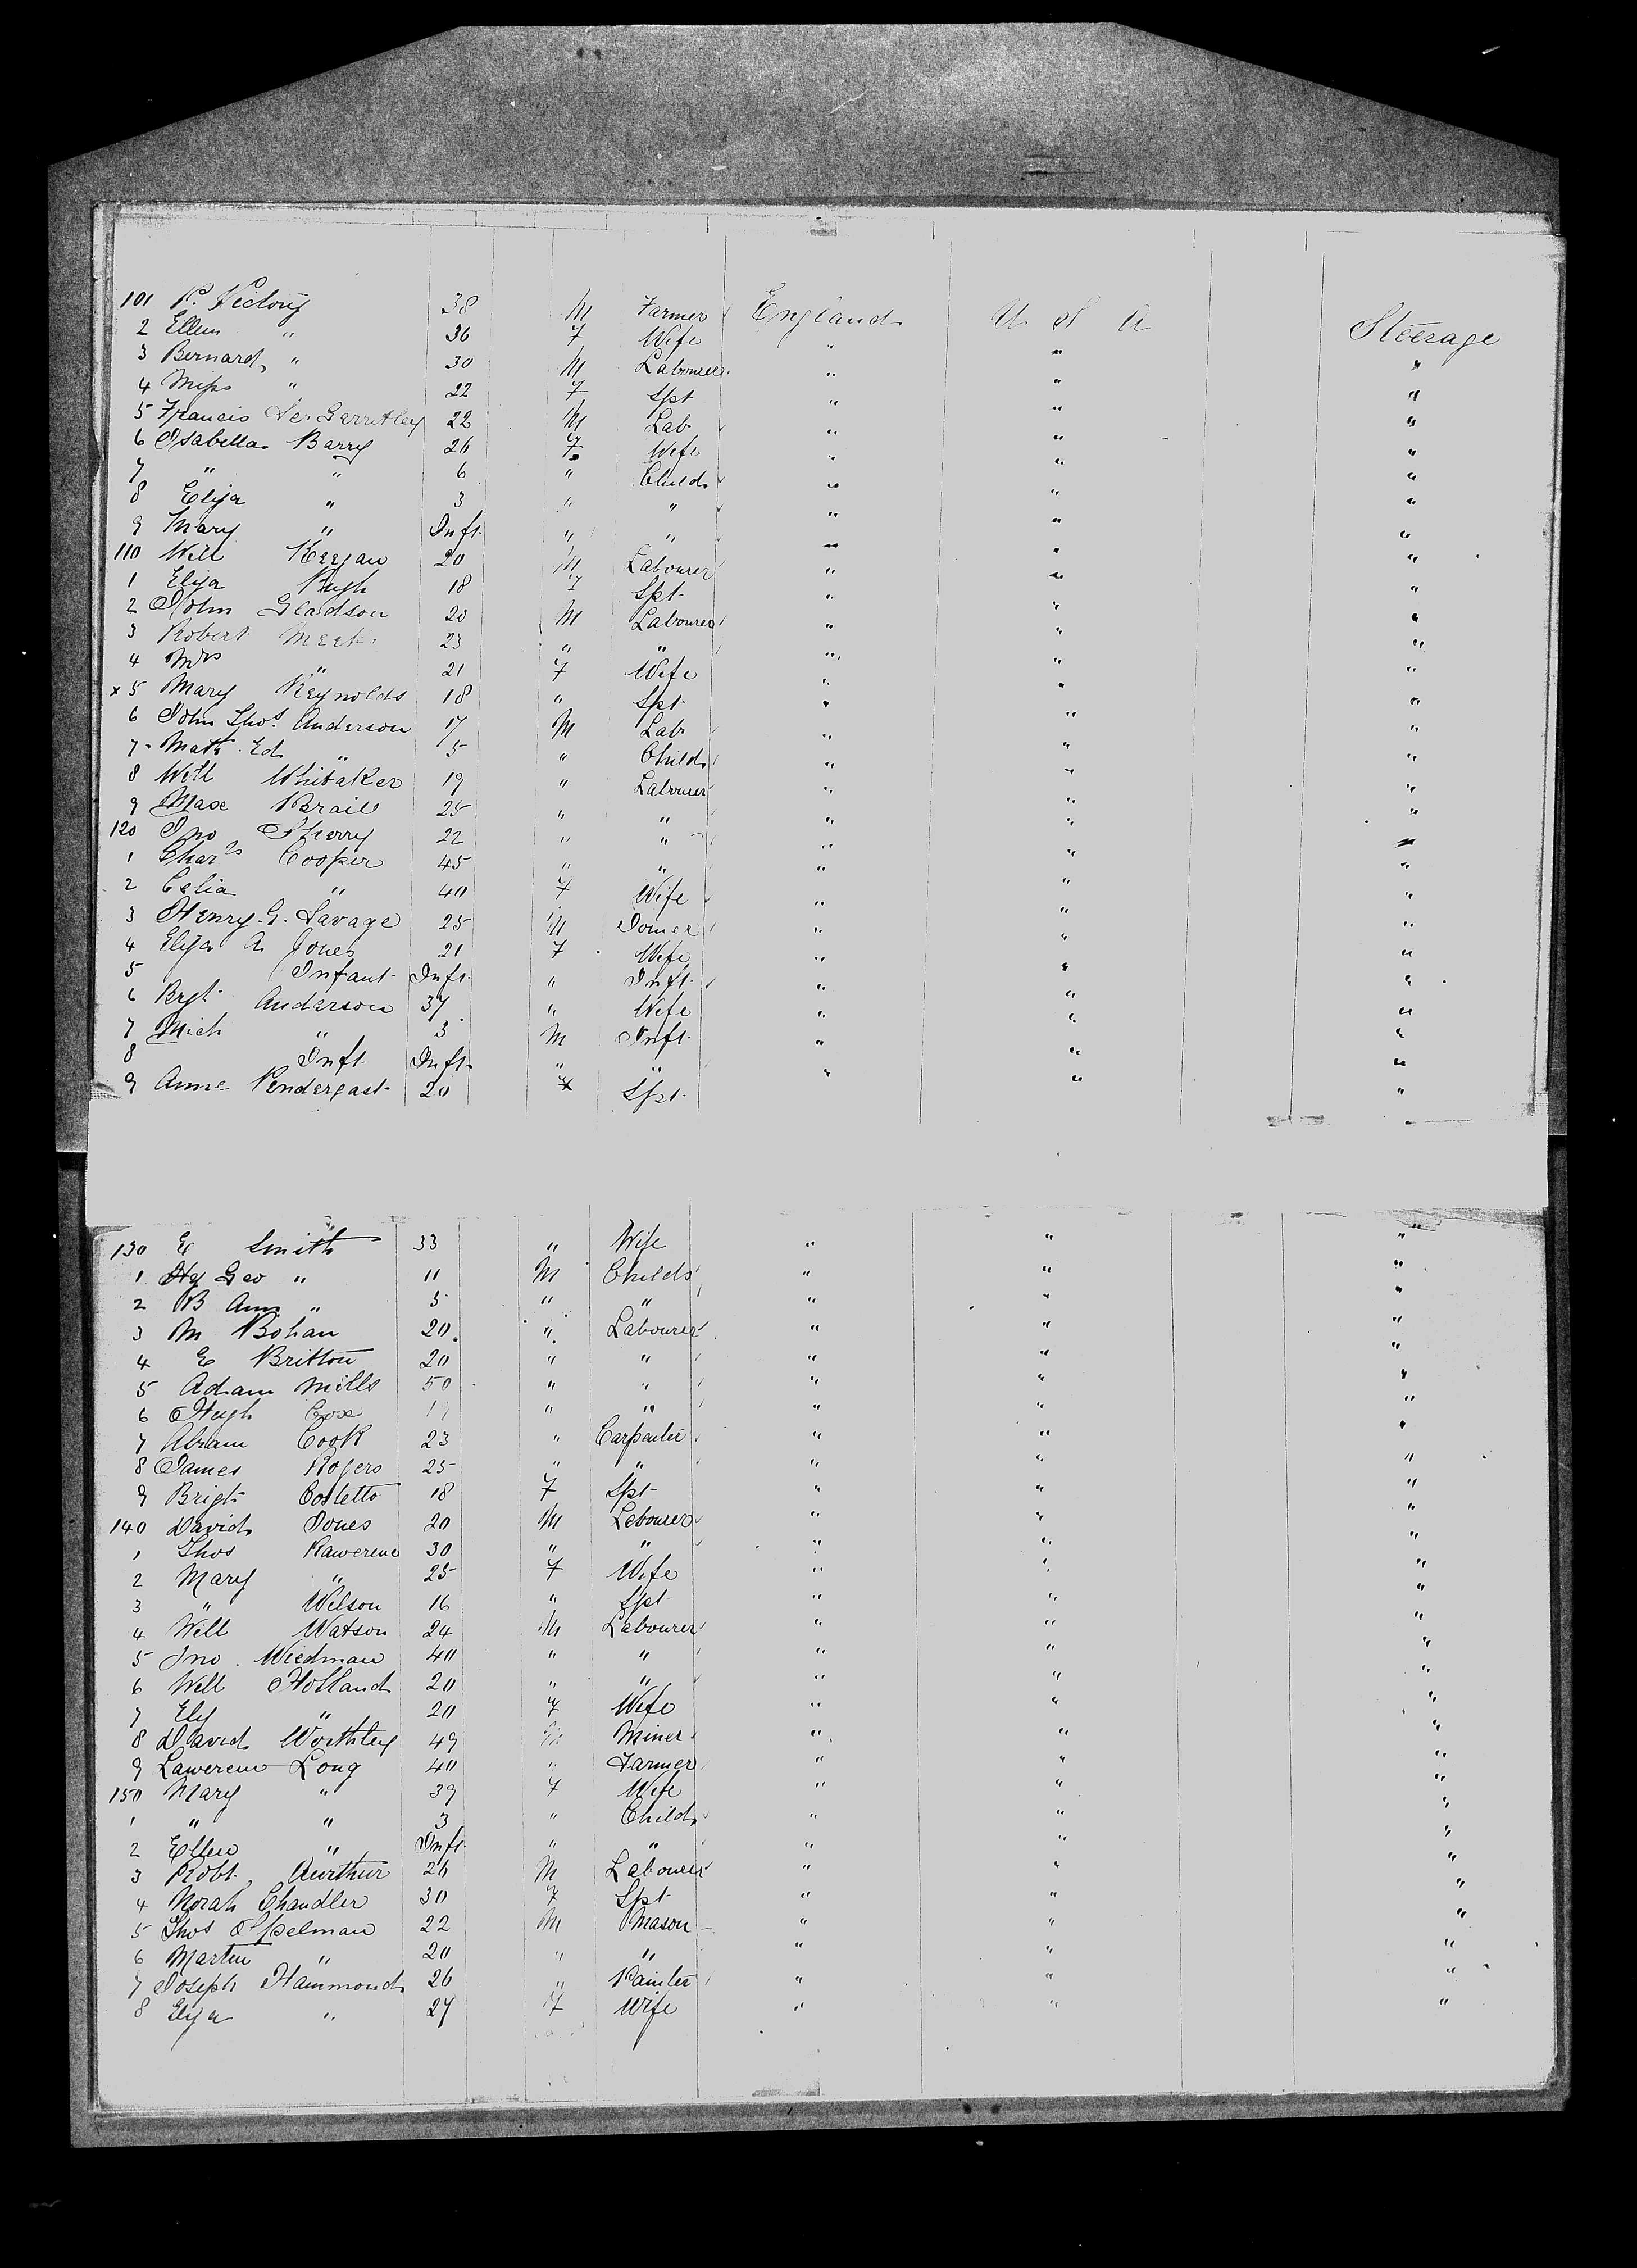 101 P. Victory 38 M Farmer England U S A Steerage
2 Ellen " 36 F Wife " " "
3 Bernard " 30 M Labourer " " "
4 Miss " 22 F Spt " " "
5 Francis 22 M Lab " " "
6 Isabella Barry 26 F Wife " " "
7 " " 6 " Child " " "
8 Eliza " 3 " " " " "
9 Mary " Inft " " " " "
110 Will Keegan 20 M Labourer " " "
1 Eliza Pugh 18 F Spt " " "
2 John Gladson 20 M Labourer " " "
3 Robert 23 " " " " "
4 Mrs " 21 F Wife " " "
x 5 Mary Reynolds 18 " Spt " " "
6 John Thos. Anderson 17 M Lab " " "
7 Matt. Ed. " 5 " Child " " "
8 Will Whitaker 19 " Labourer " " "
9 25 " " " " "
120 Jno Sherry 22 " " " " "
1 Chars Cooper 45 " " " " "
2 Celia " 40 F Wife " " "
3 Henry G. Savage 25 M " " "
4 Eliza A. Jones 21 F Wife " " "
5 Infant Inft " Inft " " "
6 Bgt Anderson 37 " Wife " " "
7 Mich " 3 M Inft " " "
8 Inft Inft " " " " "
9 Anne Pendergast 20 F Spt " " "
130 E Smith 33 " Wife " " "
1 Hy Geo " 11 M Childs " " "
2 B Ann " 5 " " " " "
3 M Bohan 20 " Labourer " " "
4 E Britton 20 " " " " "
5 Adam Mills 50 " " " " "
6 Hugh Cox 19 " " " " "
7 Abram Cook 23 " Carpenter " " "
8 James Rogers 25 " " " " "
9 Brigt Costello 18 F Spt " " "
140 David Jones 20 M Labourer " " "
1 Thos Rawerence 30 " " " " "
2 Mary " 25 F Wife " " "
3 " Wilson 16 " Spt " " "
4 Will Watson 24 M Labourer " " "
5 Jno. Wiedman 40 " " " " "
6 Will Holland 20 " " " " "
7 Ely " 20 F Wife " " "
8 David Worthley 49 M Miner " " "
9 Lawerence Long 40 " Farmer " " "
150 Mary " 39 F Wife " " "
1 " " 3 " Child " " "
2 Ellen " Inft " " " " "
3 Robt. Aurthur 26 M Labourer " " "
4 Norah Chandler 30 F Spt " " "
5 Thos Spelman 22 M Mason " " "
6 Martin " 20 " " " " "
7 Joseph Hammond 26 " Painter " " "
8 Eliza " 27 F Wife " " "